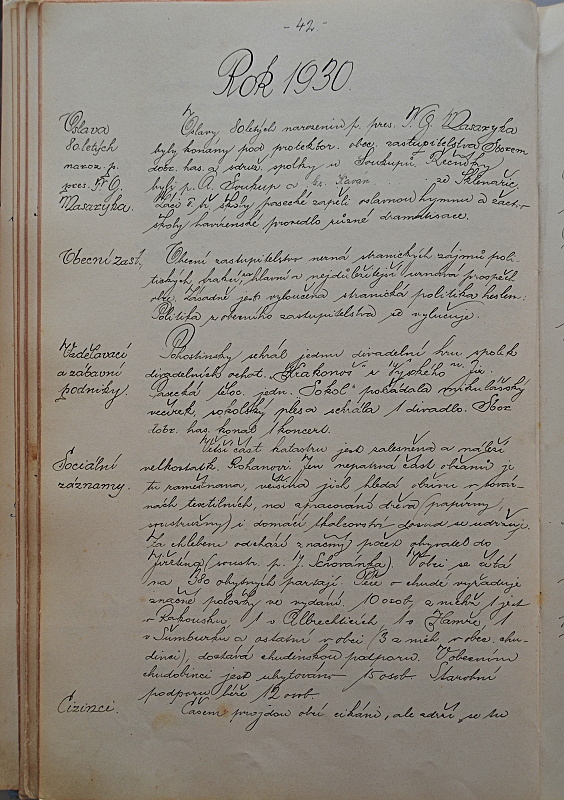 - 42 -
Rok 1930.
Oslava
80 letých
naroz. p.
pres. T. G.
Masaryka.
Oslavy 80letých narozenin p. pres. T. G. Masaryka
byly konány pod protektor. obec. zastupitelstva Sborem
dobr. has. a sdruž. spolky u Soukupů. Řečníky
byli p. A. Soukup a ze Sklenařic,
Žáci školy pasecké zapěli oslavnou hymnu a žáci
školy havírenské provedli různé dramatisace.
Obecní zast.
Obecní zastupitelstvo nemá stranických zájmů poli-
tických frakcí, hlavní a nejdůležitější prospěch
obce. Zásadně jest vyloučena stranická politika heslem:
Politika z obecního zastupitelstva se vylučuje.
Vzdělávací
a zábavní
podniky.
Pohostinsky sehrál jednu divadelní hru spolek
divadelních ochot. "Krakonoš" z Vysokého n. Jiz.
Pasecká těloc. jedn. "Sokol" pořádala mikulášský
večírek, sokolský ples a sehrála 1 divadlo. Sbor
dobr. has. konal 1 koncert.
Sociální
záznamy.
Větší část katastru jest zalesněna a náleží
velkostatk. Rohanovu. Jen nepatrná část občanů je
tu zaměstnána, většina jich hledá obživu v továr-
nách textilních, na zpracování dřeva (papírny,
soustružny) i domácí tkalcovství dosud se udržuje.
Za chlebem odchází značný počet obyvatel do
Jiřetína (soustr. p. J. Schovánka). V obci se čítá
na 380 obytných partají. Péče o chudé vyžaduje
značné položky ve vydání. 10 osob z nichž 1 jest
v Rakousku, 1 v Albrechticích, 1 v Hamře, 1
v Šumburku a ostatní v obci (3 z nich v obec. chu-
dinci), dostává chudinskou podporu. V obecním
chudobinci jest ubytováno 5 osob. Starobní
podporu béře 12 osob.
Cizinci.
Časem projdou obcí cikáni, ale zdrží se tu